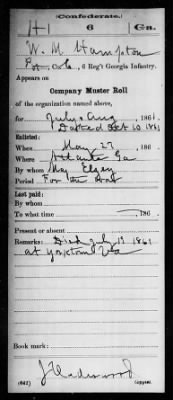 (Confederate.)
H 6 Ga.
W. M. Hampton
Pvt, Co. 6 Reg't Georgia Infantry.
Appears on
Company Muster Roll
of the organization named above,
for July & Aug, 1861.
Dated Oct 10 1861
Enlisted:
When May 27, 186
Where Atlanta Ga
By whom Maj
Period For the War
Last paid:
By whom
To what time , 186 .
Present or absent
Remarks: Died July 19 1861
at Yorktown Va
Book mark:
(642) Copyist.